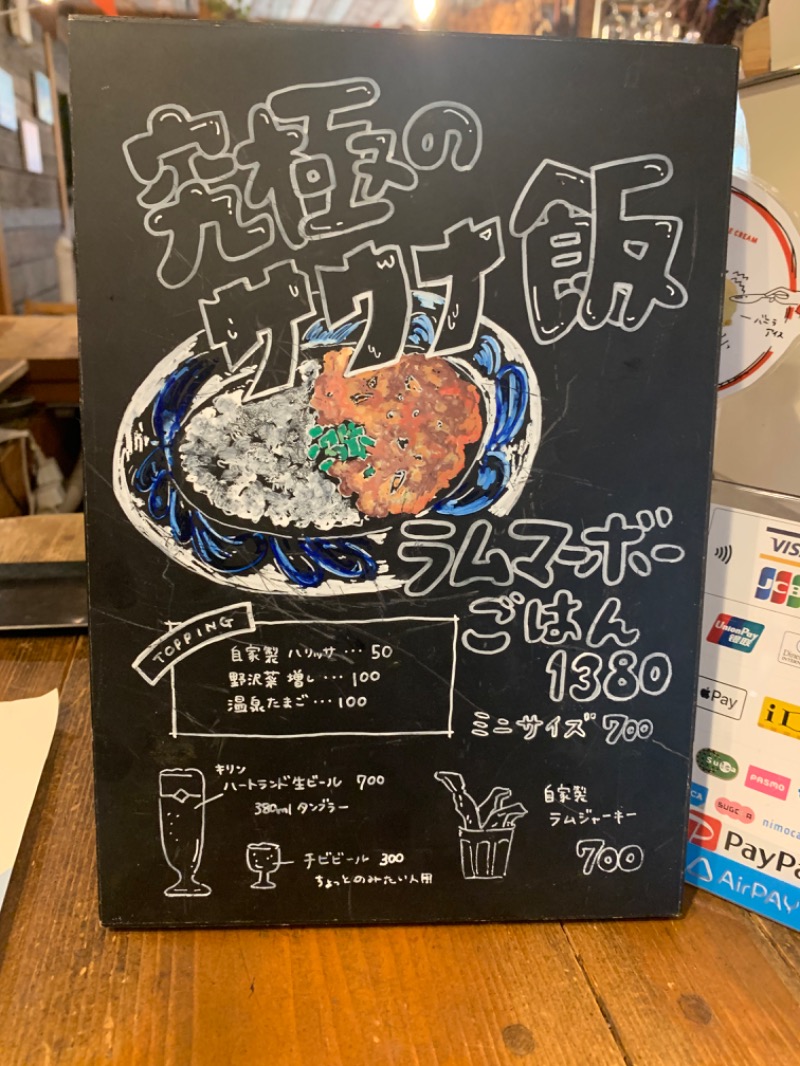 究極の
サウナ飯
ラムマーボー
ごはん
1380
ミニサイズ 700
TOPPING
自家製 ハリッサ … 50
野沢菜 増し … 100
温泉たまご … 100
キリン
ハートランド生ビール 700
380ml タンブラー
チビビール 300
ちょっとのみたい人用
自家製
ラムジャーキー
700
CREAM
バニラ
アイス
VISA
JCB
UnionPay
银联
Pay
iD
Suica
PASMO
SUGOCA
nimoca
PayPa
AirPAY